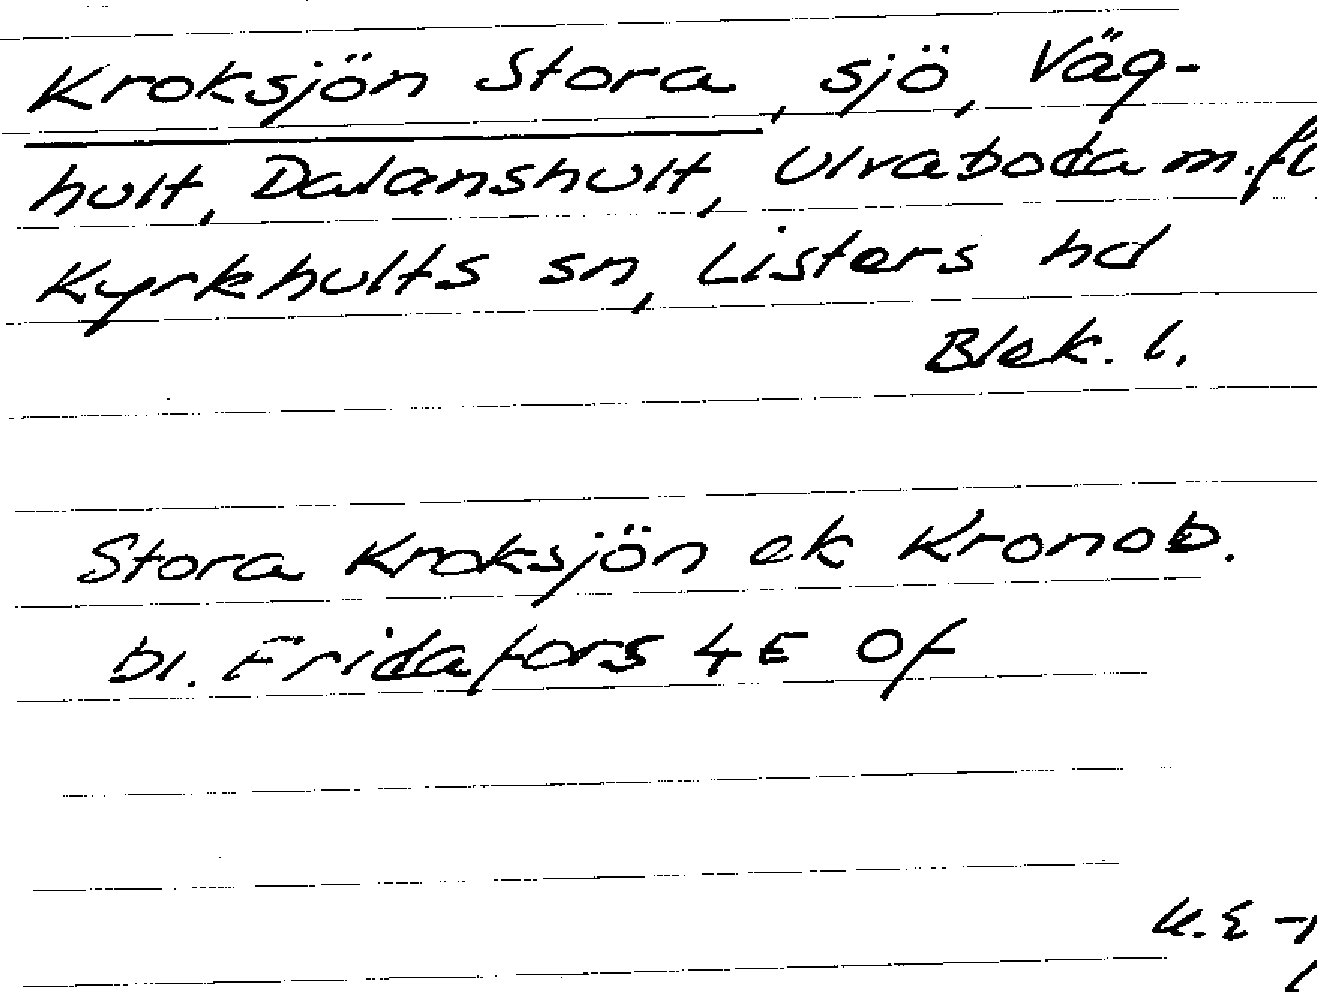 Kroksjön Stora, sjö, Väg-
hult, Dalanshult, Ulvaboda m.fl
Kyrkhults sn, Listers hd
Blek. l.
Stora Kroksjön ek Kronob.
bl. Fridafors 4E 0f
K.E